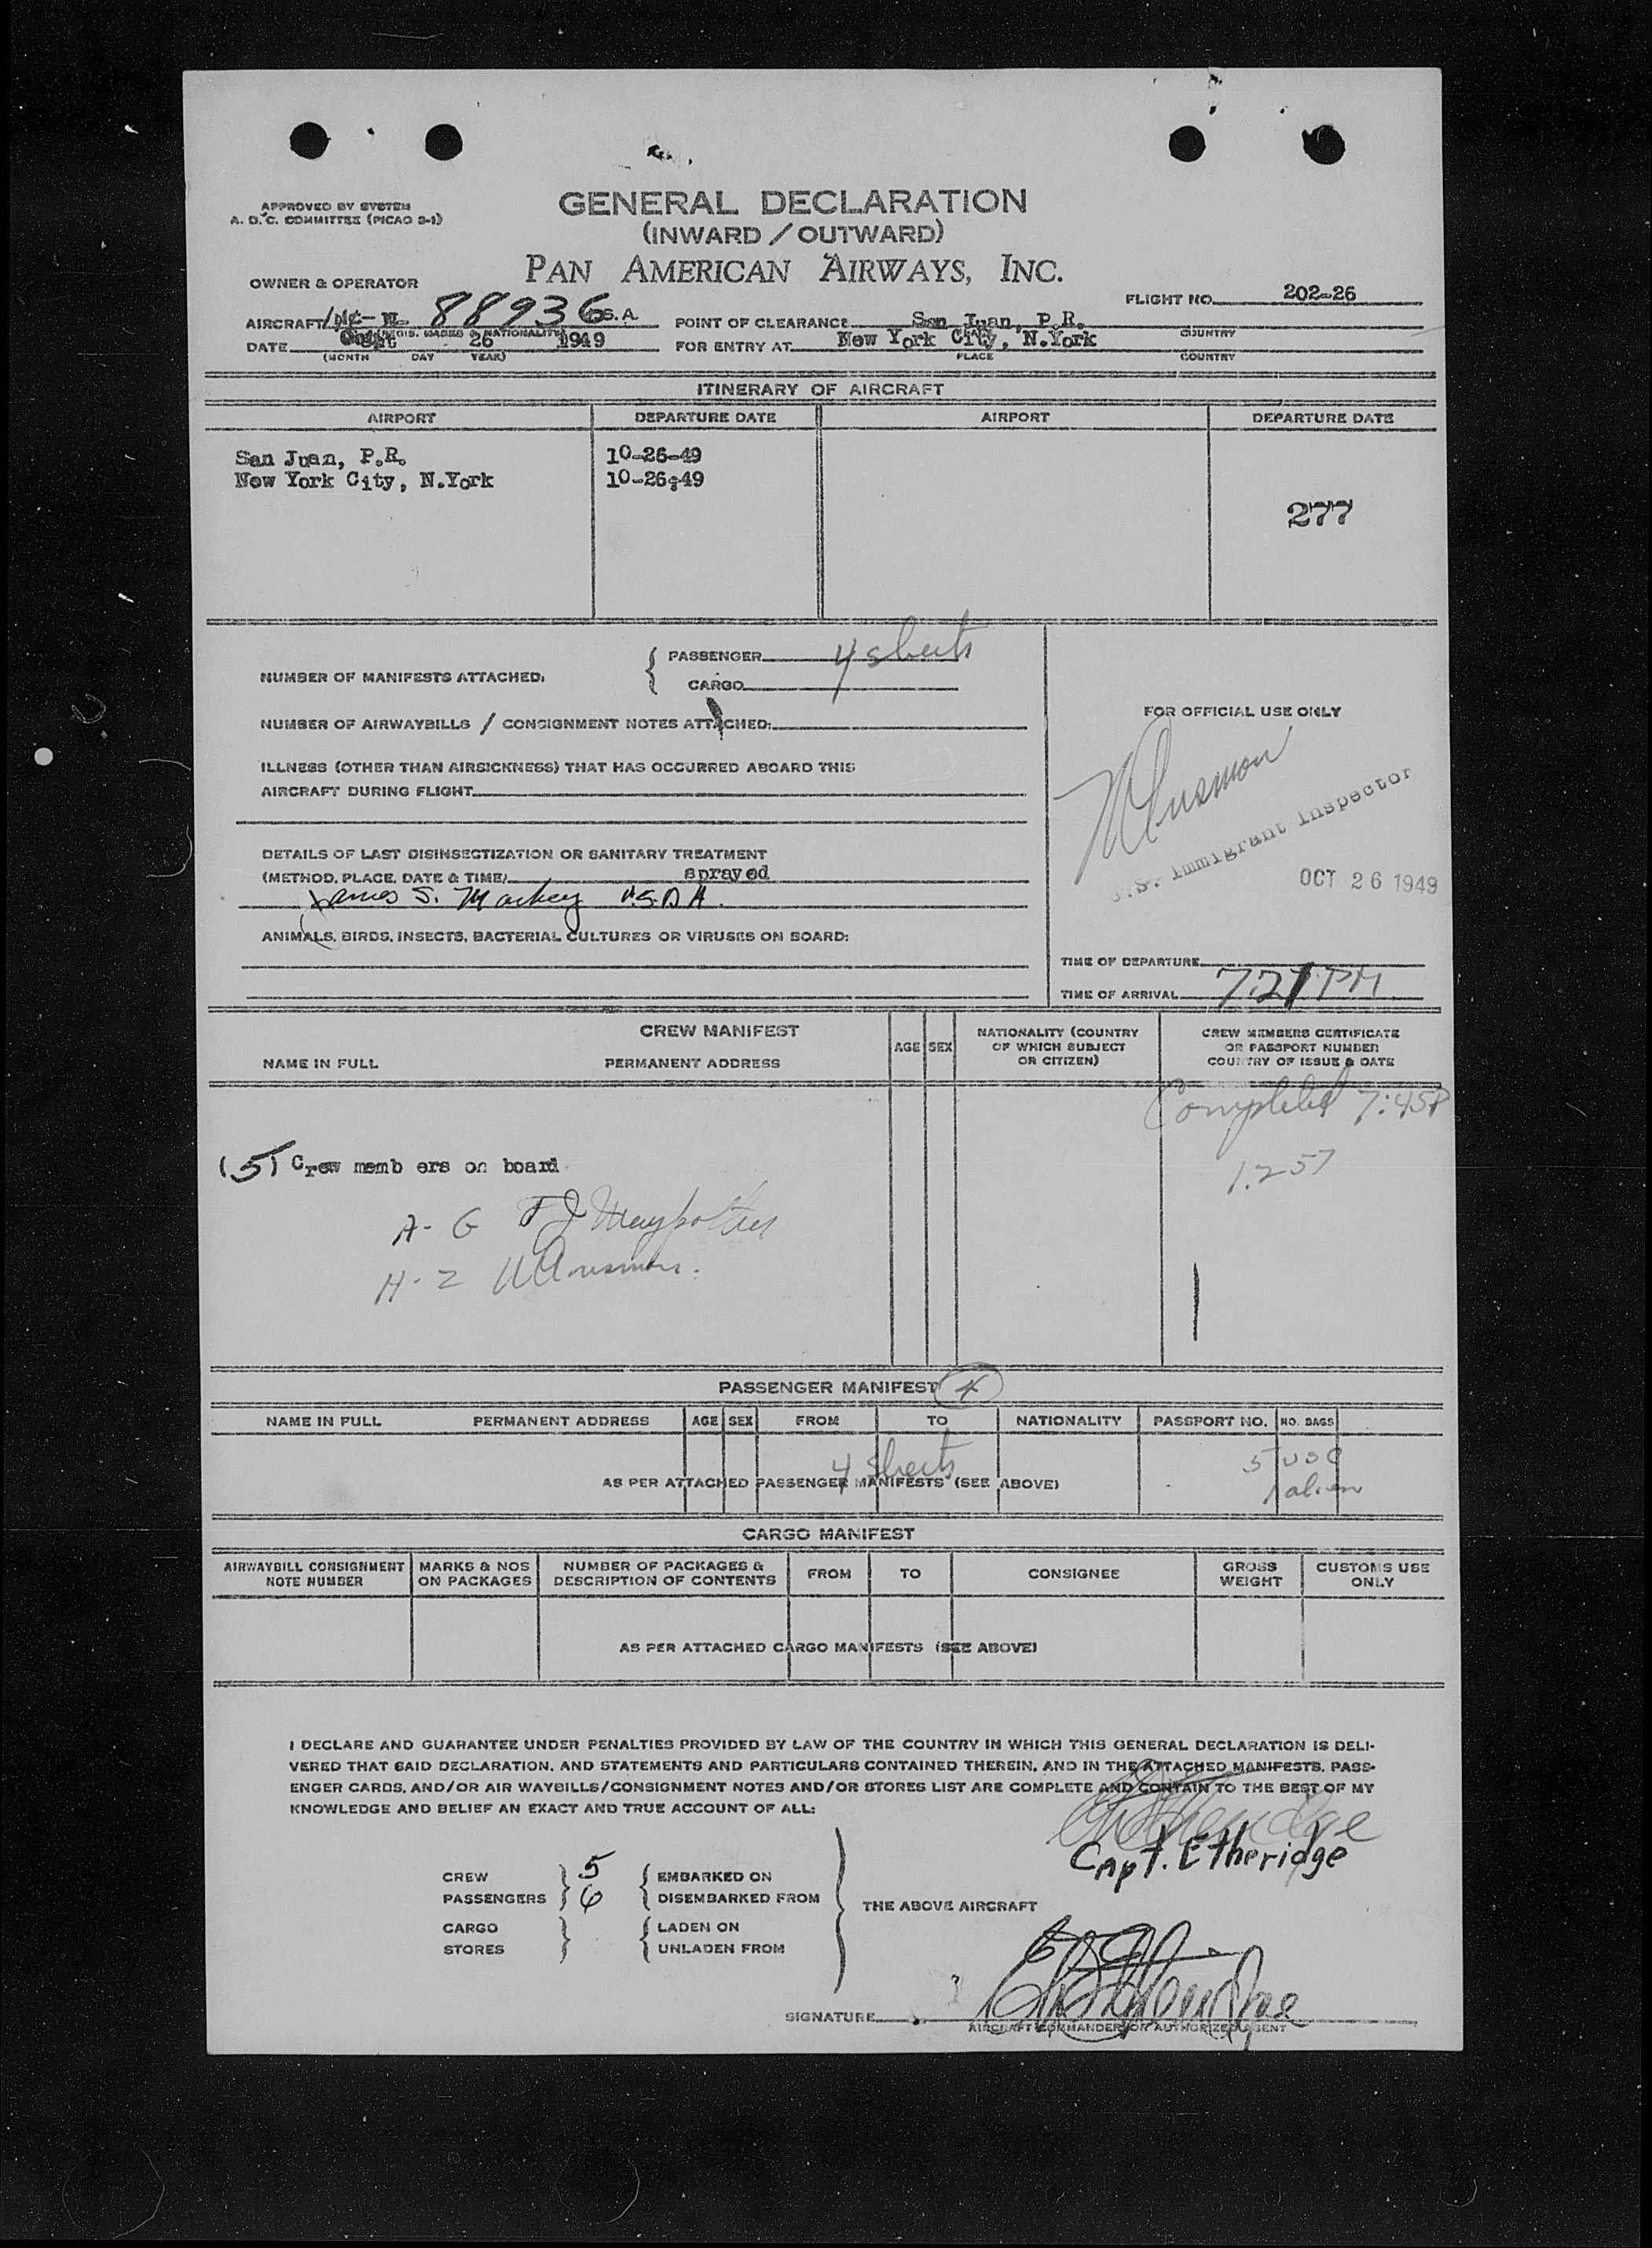 APPROVED BY SYSTEM
A. D. C. COMMITTEE (PICAO 2-1)
GENERAL DECLARATION
(INWARD / OUTWARD)
PAN AMERICAN AIRWAYS, INC.
OWNER & OPERATOR
FLIGHT NO. 202-26
AIRCRAFT 88936 U.S.A.
(REGIS. MARKS & NATIONALITY)
POINT OF CLEARANCE San Juan, P.R.
COUNTRY
DATE 26 1949
(MONTH DAY YEAR)
FOR ENTRY AT New York City, N.York
PLACE COUNTRY
ITINERARY OF AIRCRAFT
AIRPORT DEPARTURE DATE AIRPORT DEPARTURE DATE
San Juan, P.R. 10-26-49
New York City, N.York 10-26-49
277
NUMBER OF MANIFESTS ATTACHED: PASSENGER 4 sheets
CARGO
NUMBER OF AIRWAYBILLS / CONSIGNMENT NOTES ATTACHED:
ILLNESS (OTHER THAN AIRSICKNESS) THAT HAS OCCURRED ABOARD THIS
AIRCRAFT DURING FLIGHT
DETAILS OF LAST DISINSECTIZATION OR SANITARY TREATMENT
(METHOD, PLACE, DATE & TIME) sprayed
James S. Mackey U.S.D.A.
ANIMALS, BIRDS, INSECTS, BACTERIAL CULTURES OR VIRUSES ON BOARD:
FOR OFFICIAL USE ONLY
U.S. Immigrant Inspector
OCT 26 1949
TIME OF DEPARTURE
TIME OF ARRIVAL 7:21 PM
CREW MANIFEST
NAME IN FULL PERMANENT ADDRESS
AGE SEX
NATIONALITY (COUNTRY
OF WHICH SUBJECT
OR CITIZEN)
CREW MEMBERS CERTIFICATE
OR PASSPORT NUMBER
COUNTRY OF ISSUE & DATE
Completed 7:45P
1.257
(5) Crew memb ers on board
A-G
H-Z
PASSENGER MANIFEST 4
NAME IN FULL PERMANENT ADDRESS AGE SEX FROM TO NATIONALITY PASSPORT NO. NO. BAGS
4 sheets
5 USC
1 alien
AS PER ATTACHED PASSENGER MANIFESTS (SEE ABOVE)
CARGO MANIFEST
AIRWAYBILL CONSIGNMENT
NOTE NUMBER
MARKS & NOS
ON PACKAGES
NUMBER OF PACKAGES &
DESCRIPTION OF CONTENTS
FROM TO CONSIGNEE
GROSS
WEIGHT
CUSTOMS USE
ONLY
AS PER ATTACHED CARGO MANIFESTS (SEE ABOVE)
I DECLARE AND GUARANTEE UNDER PENALTIES PROVIDED BY LAW OF THE COUNTRY IN WHICH THIS GENERAL DECLARATION IS DELI-
VERED THAT SAID DECLARATION, AND STATEMENTS AND PARTICULARS CONTAINED THEREIN, AND IN THE ATTACHED MANIFESTS, PASS-
ENGER CARDS, AND/OR AIR WAYBILLS/CONSIGNMENT NOTES AND/OR STORES LIST ARE COMPLETE AND CONTAIN TO THE BEST OF MY
KNOWLEDGE AND BELIEF AN EXACT AND TRUE ACCOUNT OF ALL:
Capt. Etheridge
CREW 5 EMBARKED ON
PASSENGERS 6 DISEMBARKED FROM
THE ABOVE AIRCRAFT
CARGO LADEN ON
STORES UNLADEN FROM
SIGNATURE
AIRCRAFT COMMANDER OR AUTHORIZED AGENT